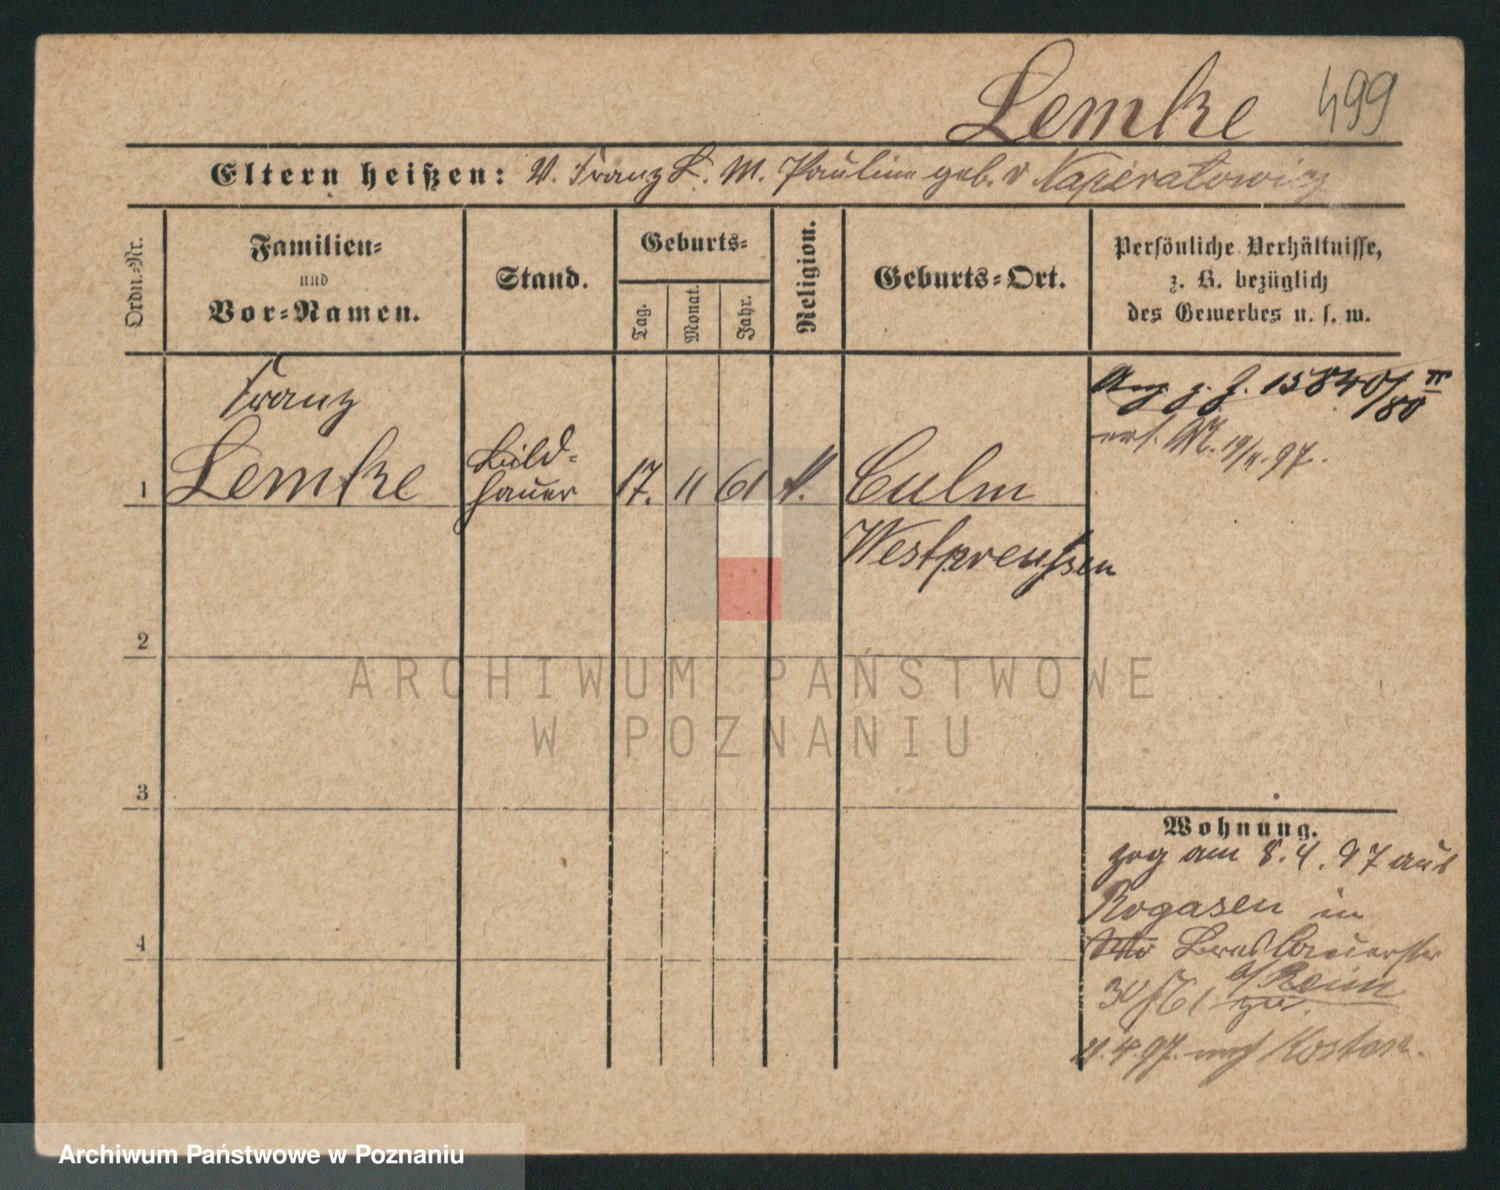 Lemke 499
Eltern heißen: V. Franz L. M. Pauline geb. v Naperatowicz
Ordn.=Nr.
Familien=
und
Vor=Namen.
Stand.
Geburts=
Tag.
Monat.
Jahr.
Religion.
Geburts=Ort.
Persönliche Verhältnisse,
z. B. bezüglich
des Gewerbes u. s. w.
Franz
1 Lemke
Bild=
hauer
17. 11 61
Culm
Westpreussen
z. 15840/80
19/4.97.
2
3
4
Wohnung.
zog am 8.4.97 aus
Rogasen in
30
zu.
4.97. nach Kosten.
ARCHIWUM PAŃSTWOWE
W POZNANIU
Archiwum Państwowe w Poznaniu